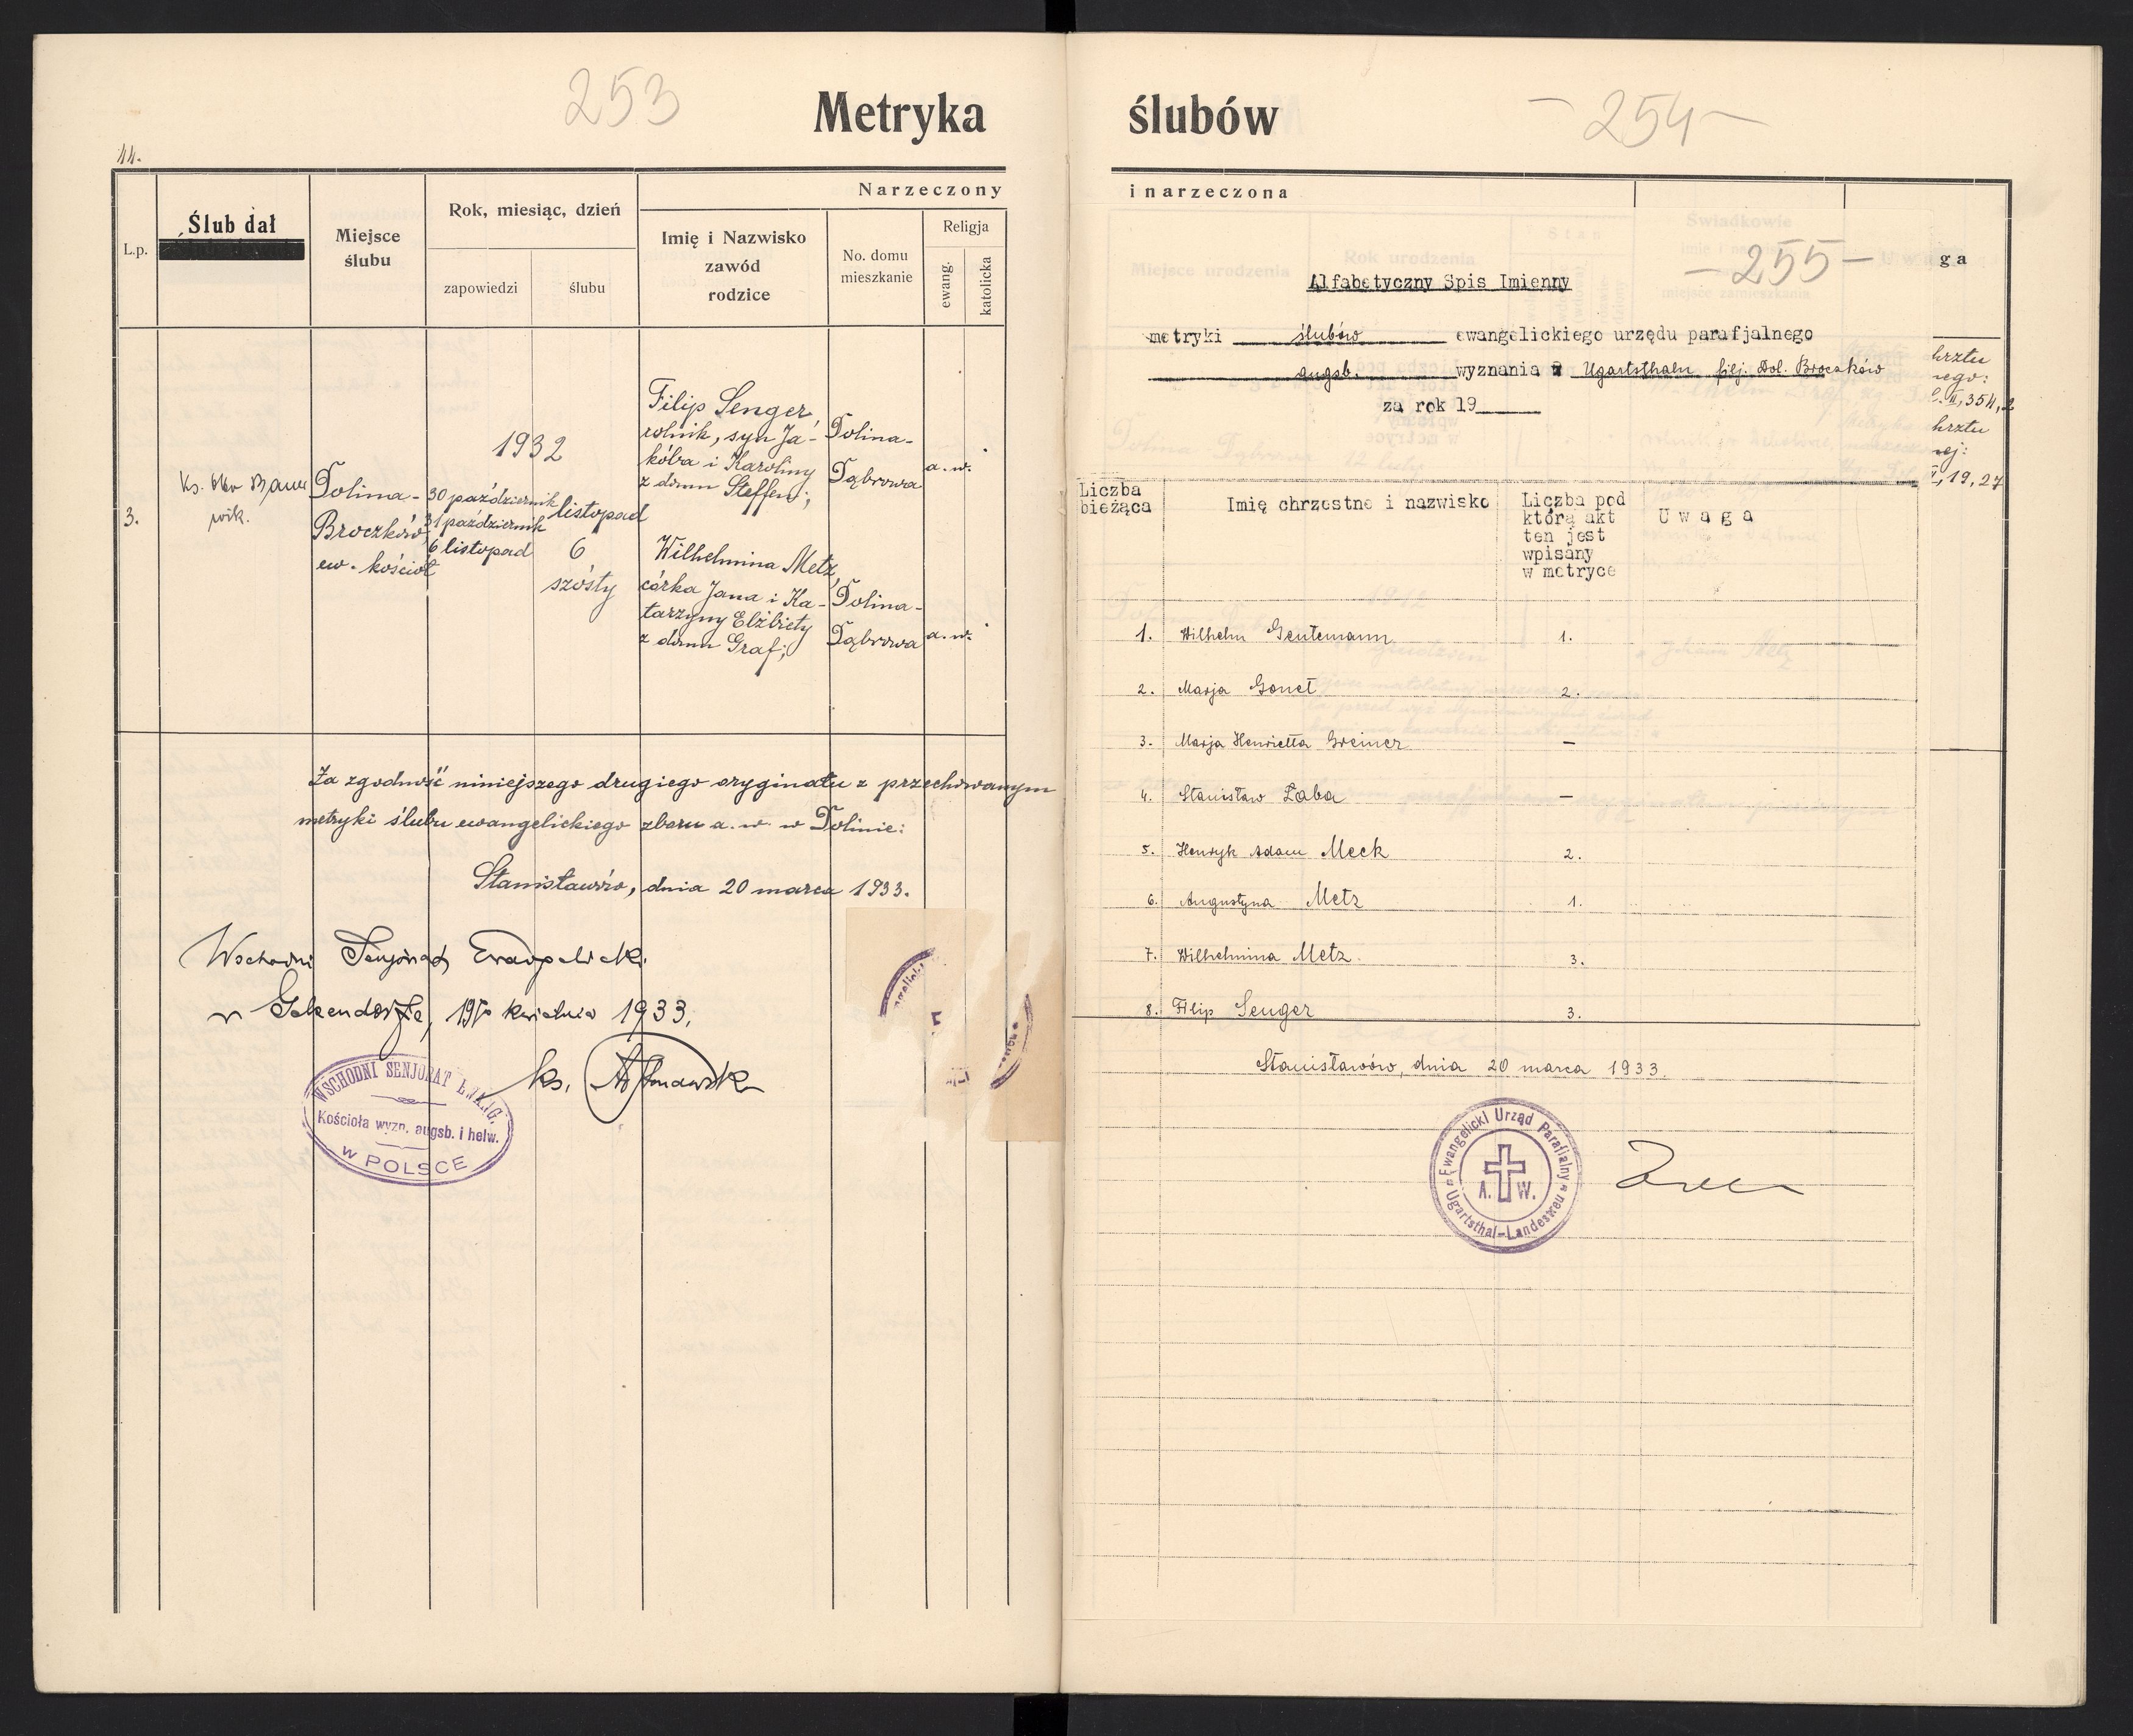 253
Metryka
11.
L.p.
Ślub dał
Miejsce
ślubu
Rok, miesiąc, dzień
zapowiedzi
ślubu
Narzeczony
Imię i Nazwisko
zawód
rodzice
No. domu
mieszkanie
Religja
ewang.
katolicka
3.
Ks.
wik.
Dolina-
Broczków
ew. kościoł
1932
30 październik
31 październik
6 listopad
listopad
6
szósty
Filip Senger,
rolnik, syn Ja-
kóba i Karoliny
z domu Steffen;
Dolina-
Dąbrowa
a.w.
Wilhelmina Metz,
córka Jana i Ka-
tarzyny Elżbiety
z domu Graf;
Dolina-
Dąbrowa
a.w.
Za zgodność niniejszego drugiego oryginału z przechowanym
metryki ślubu ewangelickiego zboru a. w. w Dolinie:
Stanisławów, dnia 20 marca 1933.
Wschodni Senjorat Ewangelicki
w Gelsendorfie, 19go kwietnia 1933.
ks.
WSCHODNI SENJORAT EWANG.
Kościoła wyzn. augsb. i helw.
w POLSCE
ślubów
-254-
i narzeczona
-255-
ga
Alfabetyczny Spis Imienny
metryki ślubów ewangelickiego urzędu parafjalnego
augsb. wyznania z Ugartsthalu filj. Dol. Broczków
za rok 19
hrztu
nego:
354, 2
hrztu
nej:
19, 27
Liczba
bieżąca
Imię chrzestne i nazwisko
Liczba pod
którą akt
ten jest
wpisany
w metryce
Uwaga
1. Wilhelm Gentemann 1.
2. Marja Gonet 2.
3. Marja Henrietta Greiner —
4. Stanisław Łaba —
5. Henryk Adam Meck 2.
6. Augustyna Metz 1.
7. Wilhelmina Metz 3.
8. Filip Senger 3.
Stanisławów, dnia 20 marca 1933.
Ewangelicki Urząd Parafialny
A. W.
Ugartsthal-Landestreu